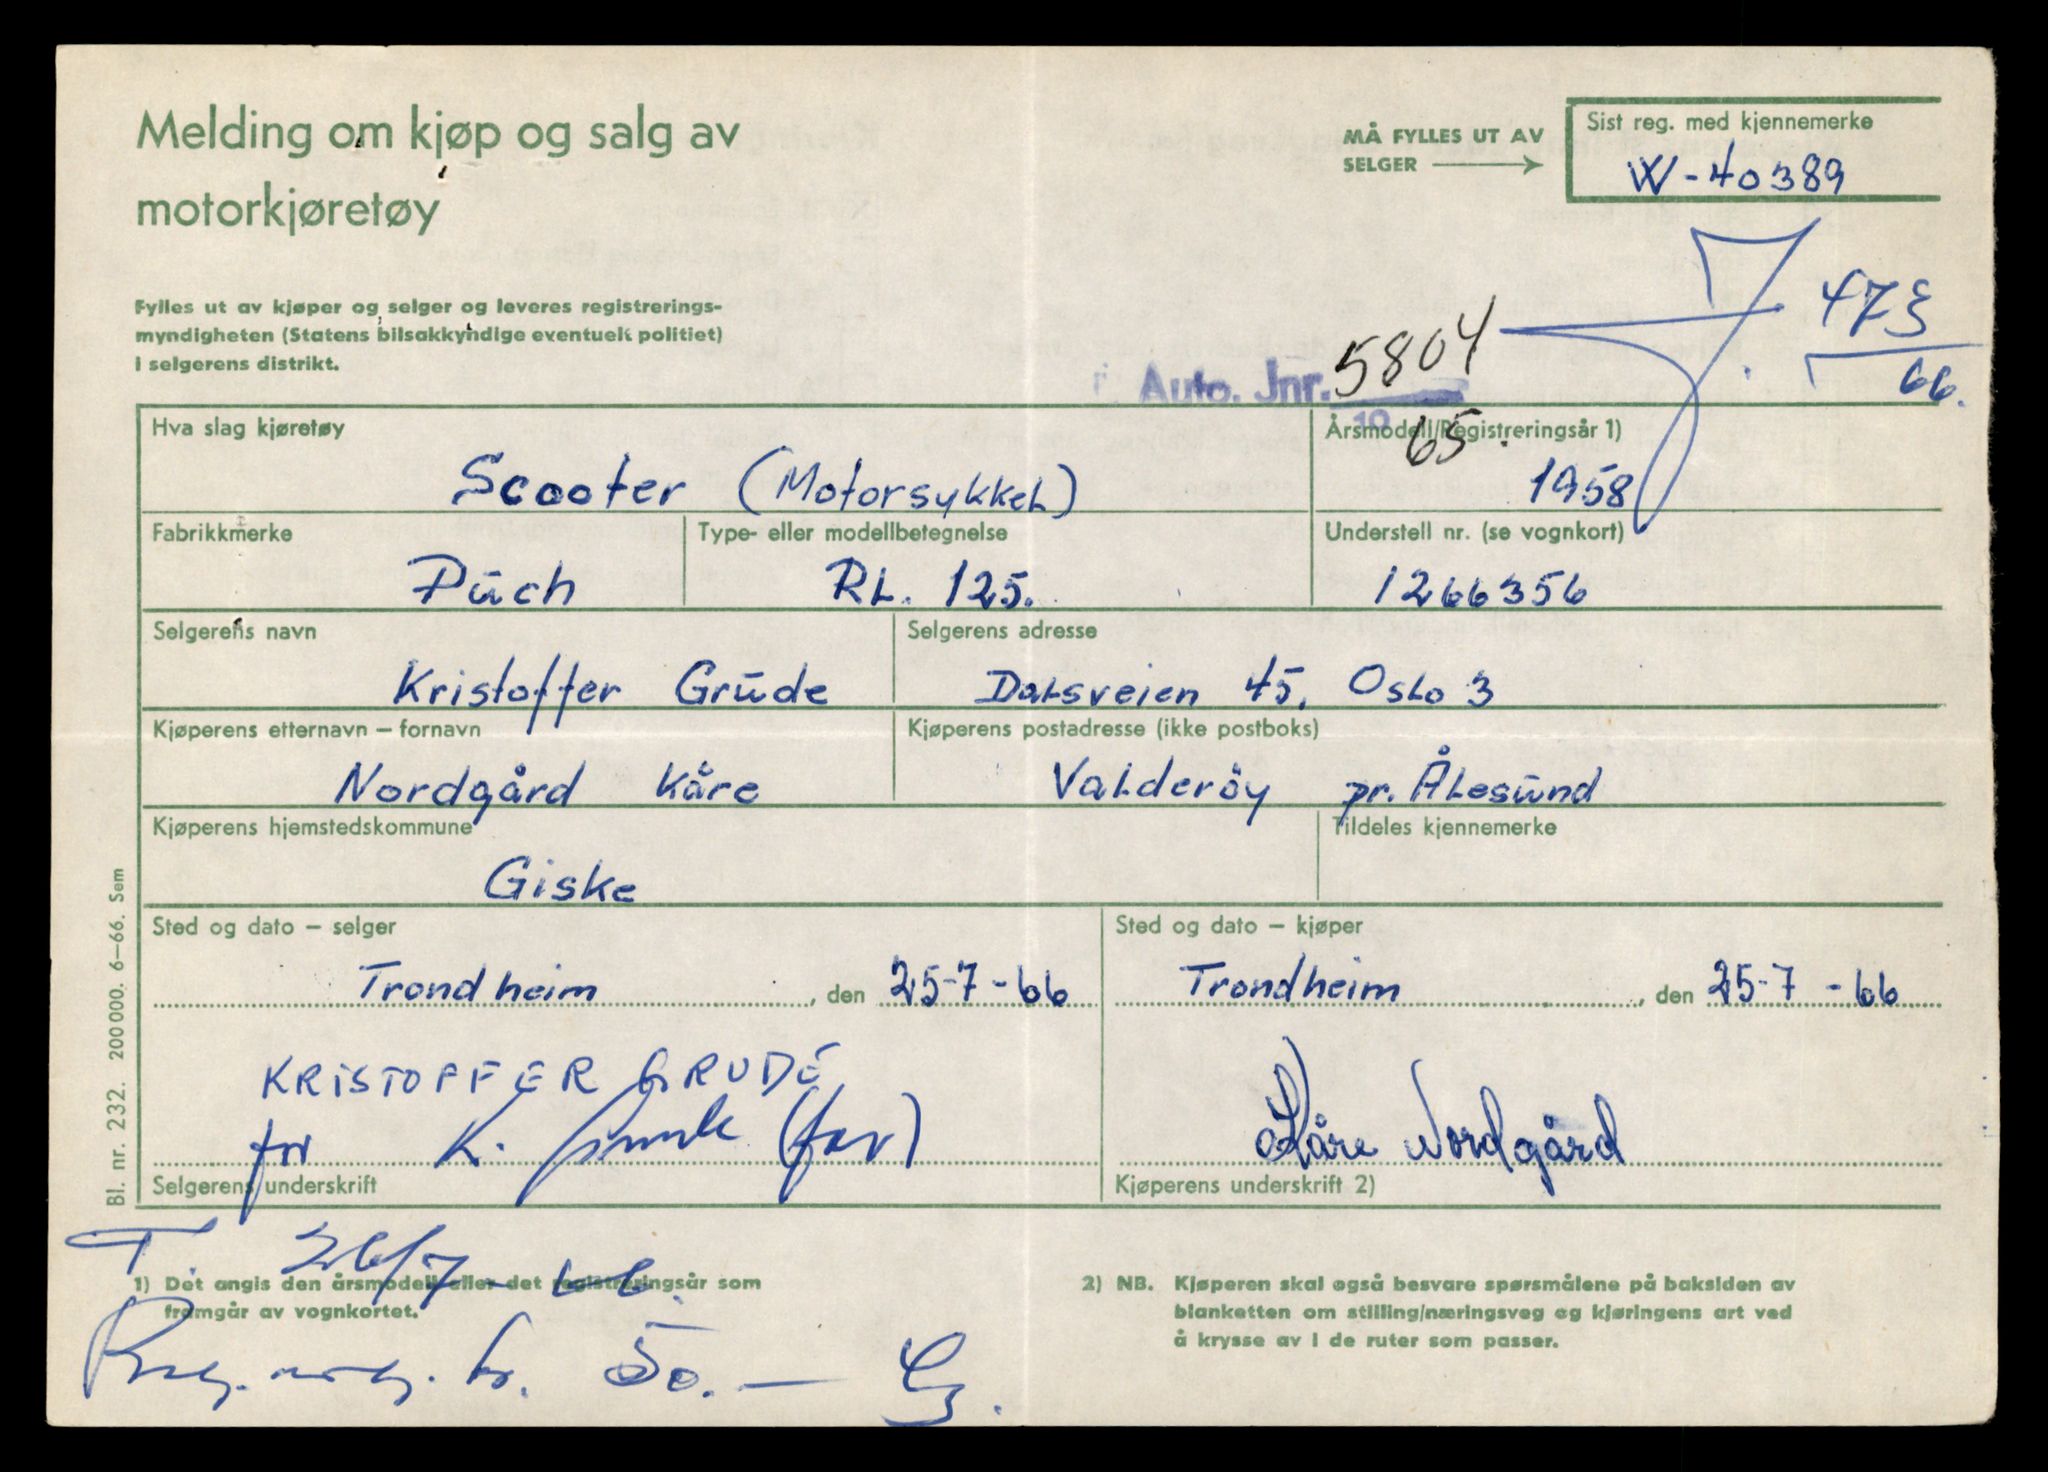 Melding om kjøp og salg av
motorkjøretøy
MÅ FYLLES UT AV
SELGER
Sist reg. med kjennemerke
W-40389
Fylles ut av kjøper og selger og leveres registrerings-
myndigheten (Statens bilsakkyndige eventuelt politiet)
i selgerens distrikt.
Auto. Jnr. 5804
19
65.
473
66.
Hva slag kjøretøy
Scooter (Motorsykkel)
Årsmodell/Registreringsår 1)
1958
Fabrikkmerke
Puch
Type- eller modellbetegnelse
RL. 125.
Understell nr. (se vognkort)
1266356
Selgerens navn
Kristoffer Grude
Selgerens adresse
Dalsveien 45, Oslo 3
Kjøperens etternavn – fornavn
Nordgård Kåre
Kjøperens postadresse (ikke postboks)
Valderöy pr. Ålesund
Kjøperens hjemstedskommune
Giske
Tildeles kjennemerke
Sted og dato – selger
Trondheim, den 25-7-66
Sted og dato – kjøper
Trondheim, den 25-7-66
KRISTOFFER GRUDE
for K. Grude (far)
Selgerens underskrift
Kåre Nordgård
Kjøperens underskrift 2)
T. 26/7-66.
1) Det angis den årsmodell eller det registreringsår som
framgår av vognkortet.
kr. 50.—
2) NB. Kjøperen skal også besvare spørsmålene på baksiden av
blanketten om stilling/næringsveg og kjøringens art ved
å krysse av i de ruter som passer.
Bl. nr. 232. 200 000. 6–66. Sem